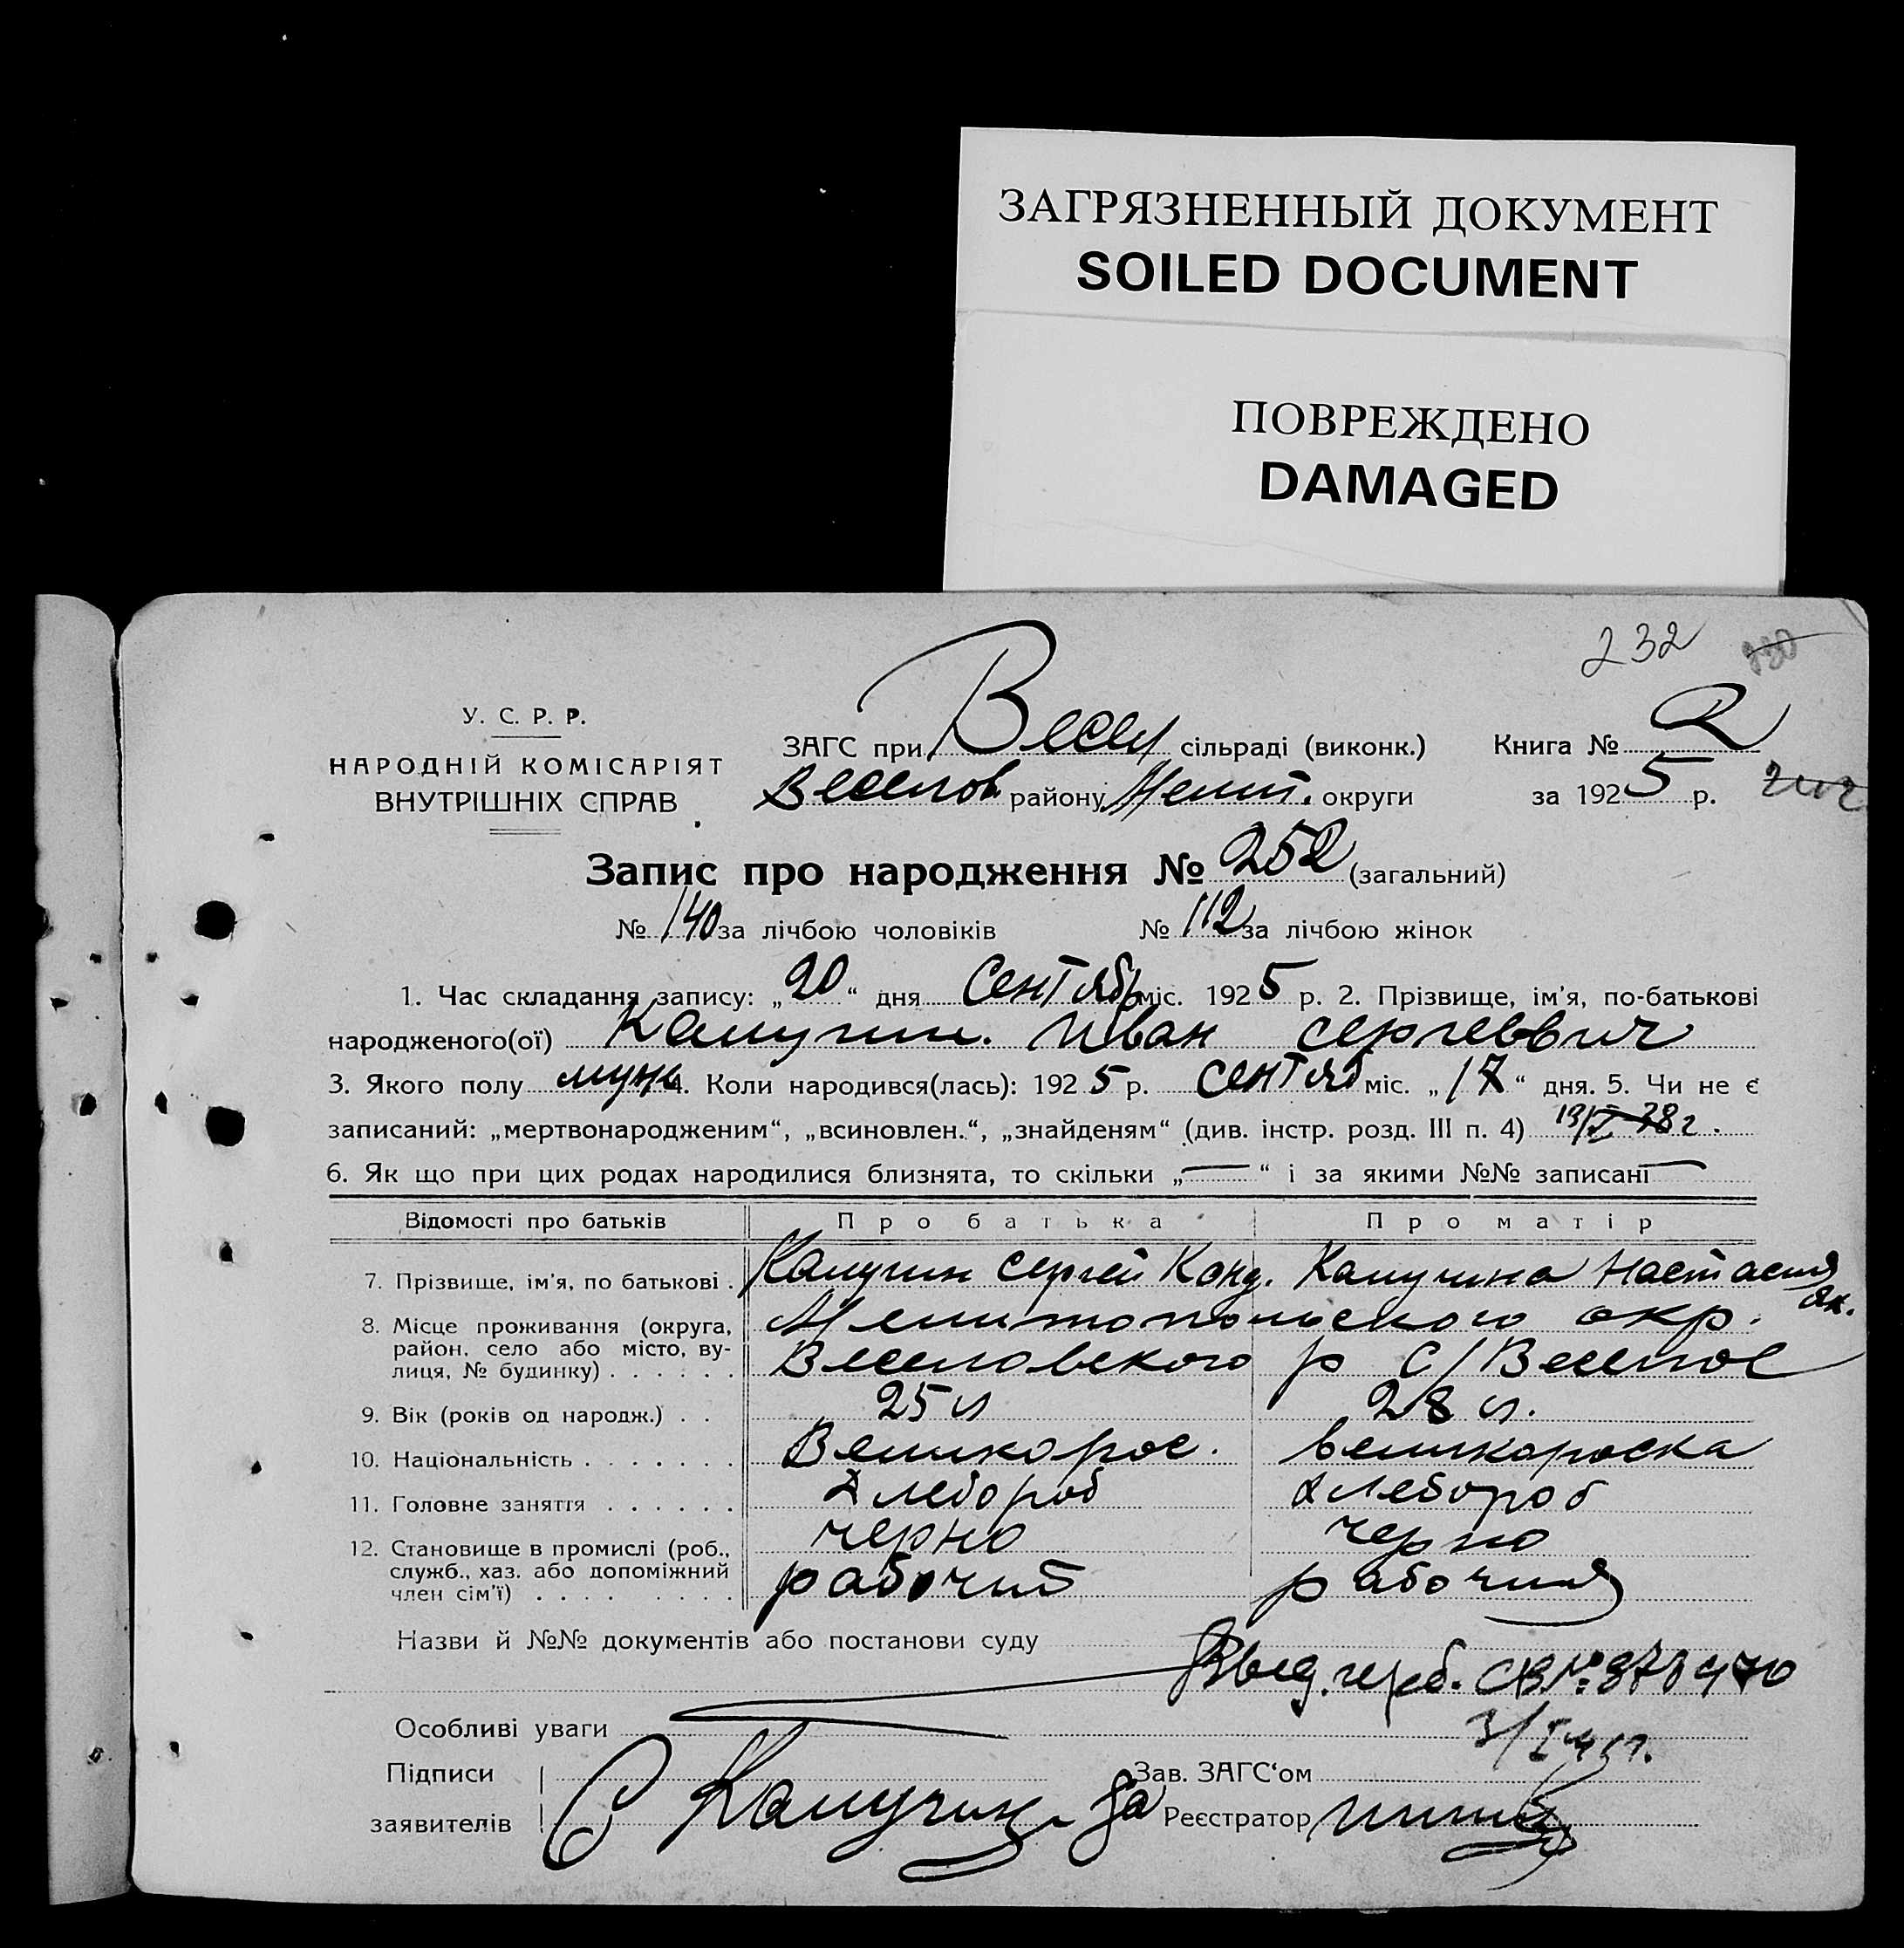 ЗАГРЯЗНЕННЫЙ ДОКУМЕНТ
SOILED DOCUMENT
ПОВРЕЖДЕНО
DAMAGED
232
У. С. Р. Р.
НАРОДНІЙ КОМІСАРІЯТ
ВНУТРІШНІХ СПРАВ
ЗАГС при Весел сільраді (виконк.)
Веселов. району Мелит. округи
Книга № 2
за 1925 р.
Запис про народження № 252 (загальний)
№ 140 за лічбою чоловіків № 112 за лічбою жінок
1. Час складання запису: „20“ дня Сентябр міс. 1925 р. 2. Прізвище, ім'я, по-батькові
народженого(ої) Калугин. Иван Сергеевич
3. Якого полу муж 4. Коли народився(лась): 1925 р. Сентяб міс. „17“ дня. 5. Чи не є
записаний: „мертвонародженим“, „всиновлен.“, „знайденям“ (див. інстр. розд. III п. 4)
6. Як що при цих родах народилися близнята, то скільки „—“ і за якими №№ записані —
Відомості про батьків Про батька Про матір
7. Прізвище, ім'я, по батькові . Калугин Сергей Конд. Калугина Настасия Як.
8. Місце проживання (округа, Мелитопольского окр.
район, село або місто, ву- Веселовского р С/Веселое
лиця, № будинку) . . . . . .
9. Вік (років од народж.) . . 25 л 28 л.
10. Національність . . . . . . . Великорос. великороска
11. Головне заняття . . . . . . Хлебороб хлебороб
12. Становище в промислі (роб., черно черно
служб., хаз. або допоміжний рабочий рабочия
член сім'ї) . . . . . . . .
Назви й №№ документів або постанови суду
Выд. герб. СВ №
Особливі уваги
Підписи
заявителів С Калугин
Зав. ЗАГС‘ом
за Реєстратор